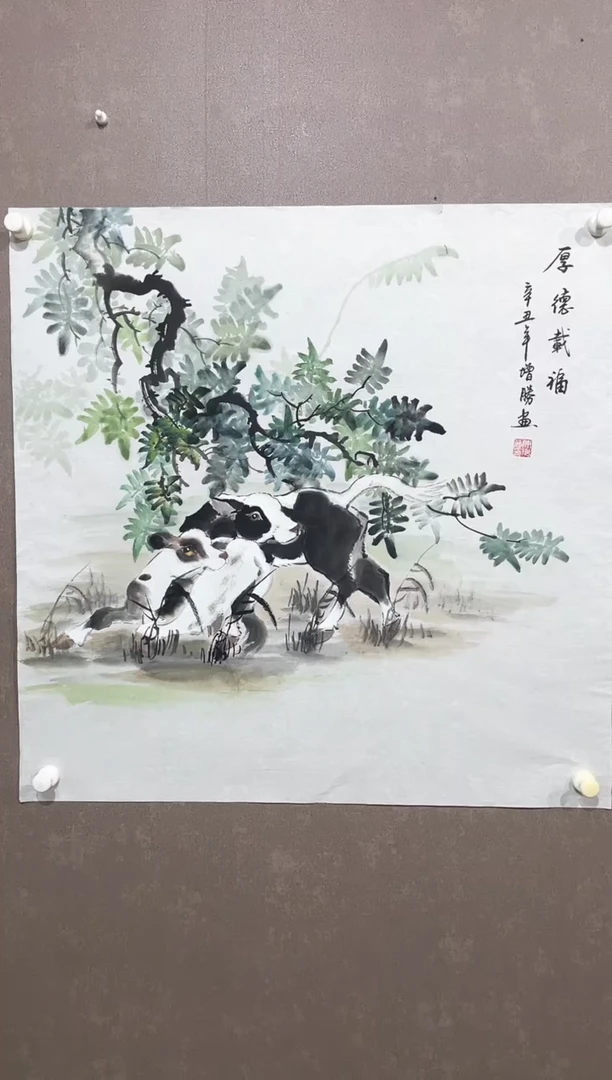 厚德载福
辛丑年增勝畫